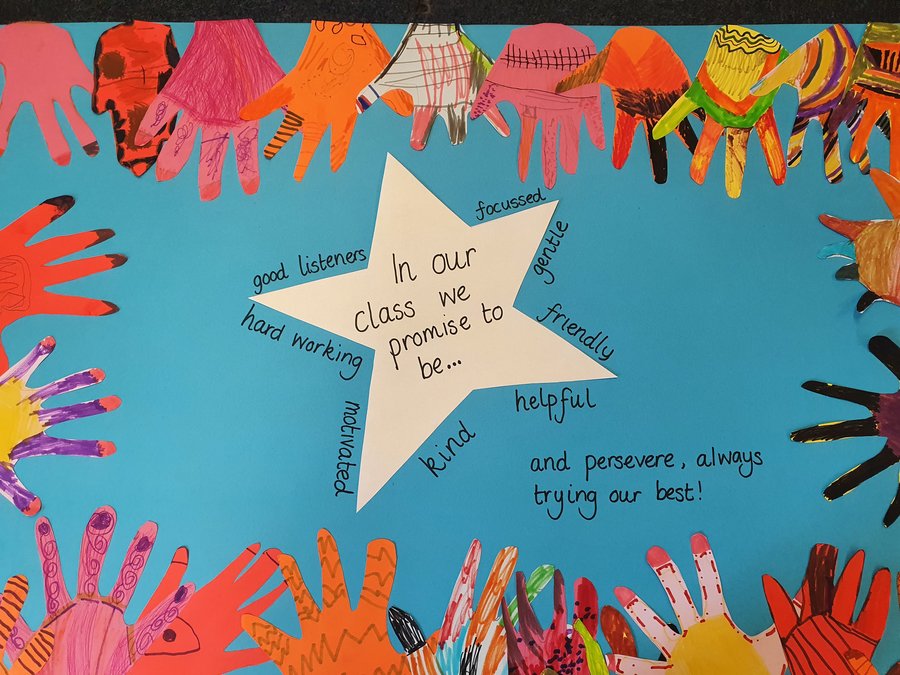 In our
class we
promise to
be...
focussed
gentle
friendly
helpful
kind
motivated
hard working
good listeners
and persevere, always
trying our best!